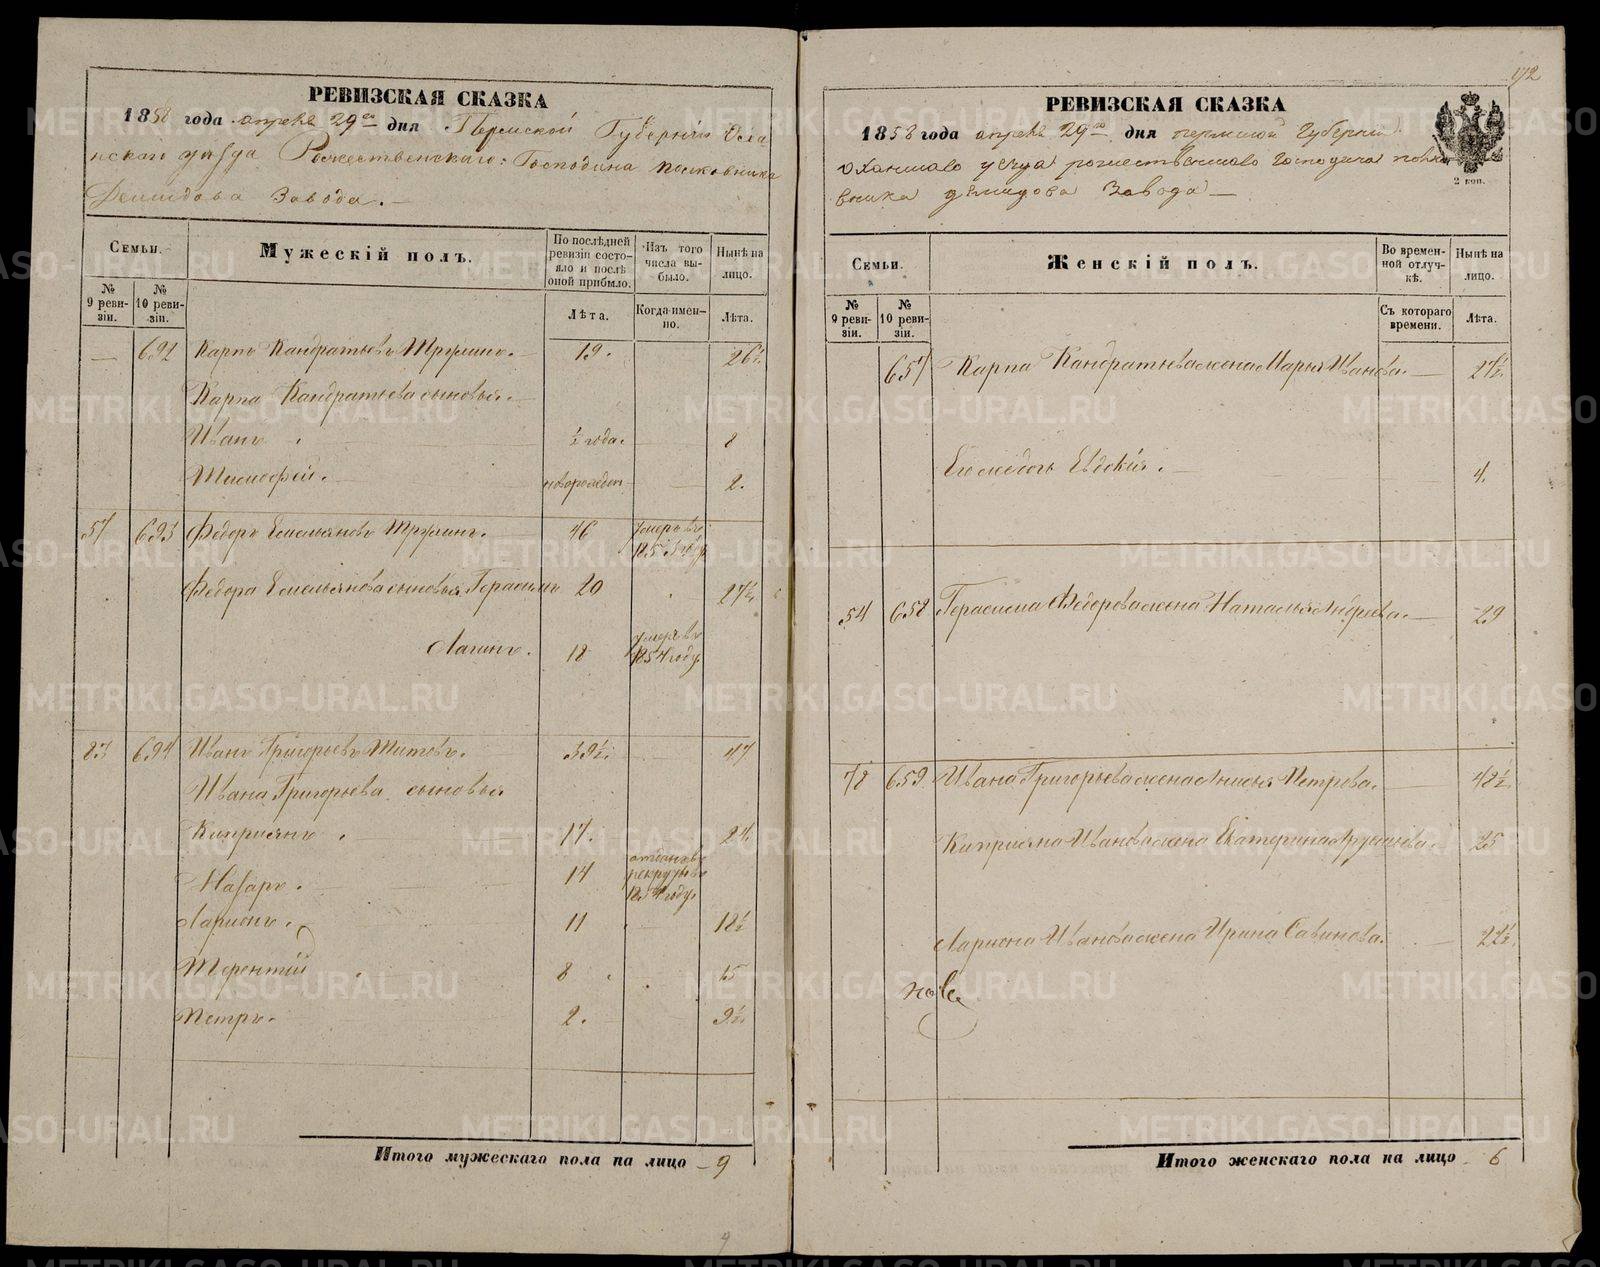 РЕВИЗСКАЯ СКАЗКА
1858 года апреля 29го дня Пермской Губернии Оха
нскаго уезда Рожественскаго: Господина полковника
Демидова Завода. —
Семьи.
№ 9 ревизіи.
№ 10 ревизіи.
Мужескій полъ.
По послѣдней ревизіи состояло и послѣ оной прибыло.
Изъ того числа выбыло.
Нынѣ на лицо.
Лѣта.
Когда именно.
Лѣта.
— 692 Карпъ Кандратьевъ 19. 26½.
Карпа Кандратьева сыновья.
Иванъ ½ года. — 8
Тимофей. новорожден — 2.
57 693 Федоръ Емельяновъ 46 умеръ въ 185 году
Федора Емельянова сыновья Герасимъ 20 27½
Логинъ. 18 умеръ въ 1854 году.
83 694 Иванъ Григорьевъ Титовъ. 39½. — 47
Ивана Григорьева сыновья
Киприянъ. 17. 24
Назаръ. 14 отданъ въ рекруты въ 1854 году.
Ларионъ. 11 18½
Терентій 8 15
Петръ. 2. 9½.
Итого мужескаго пола на лицо — 9
9
172
РЕВИЗСКАЯ СКАЗКА
1858 года апреля 29го дня пермской Губернии
оханскаго уезда рожественскаго Господина полко
вника демидова Завода —
2 коп.
Семьи.
№ 9 ревизіи.
№ 10 ревизіи.
Женскій полъ.
Во временной отлучкѣ.
Нынѣ на лицо.
Съ котораго времени.
Лѣта.
657 Карпа Кандратьева жена Марья Иванова. — 27½.
Его дочь Евдокия. 4.
54 658 Герасима Федорова жена Наталья Андреева. — 29
78 659 Ивана Григорьева жена Анисья Петрова. 48½
Киприяна Иванова жена Екатерина 25
Лариона Иванова жена Ирина Савинова. — 22½.
Итого женскаго пола на лицо — 6
METRIKI.GASO-URAL.RU